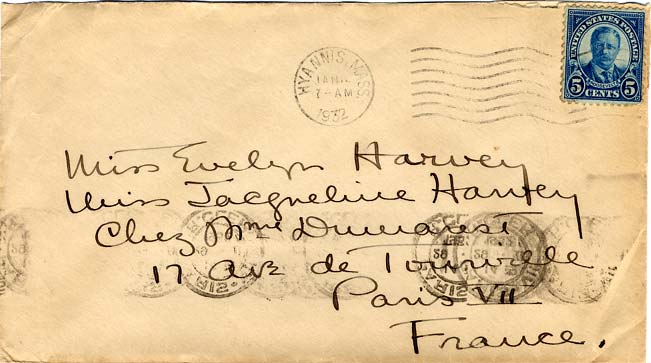 UNITED STATES POSTAGE
ROOSEVELT
5 CENTS 5
HYANNIS, MASS.
JAN
7-AM
1932
Miss Evelyn Harvey
Miss Jacqueline Harvey
Chez Mme Dumarest
17 Ave de Tourville
Paris VII
France.